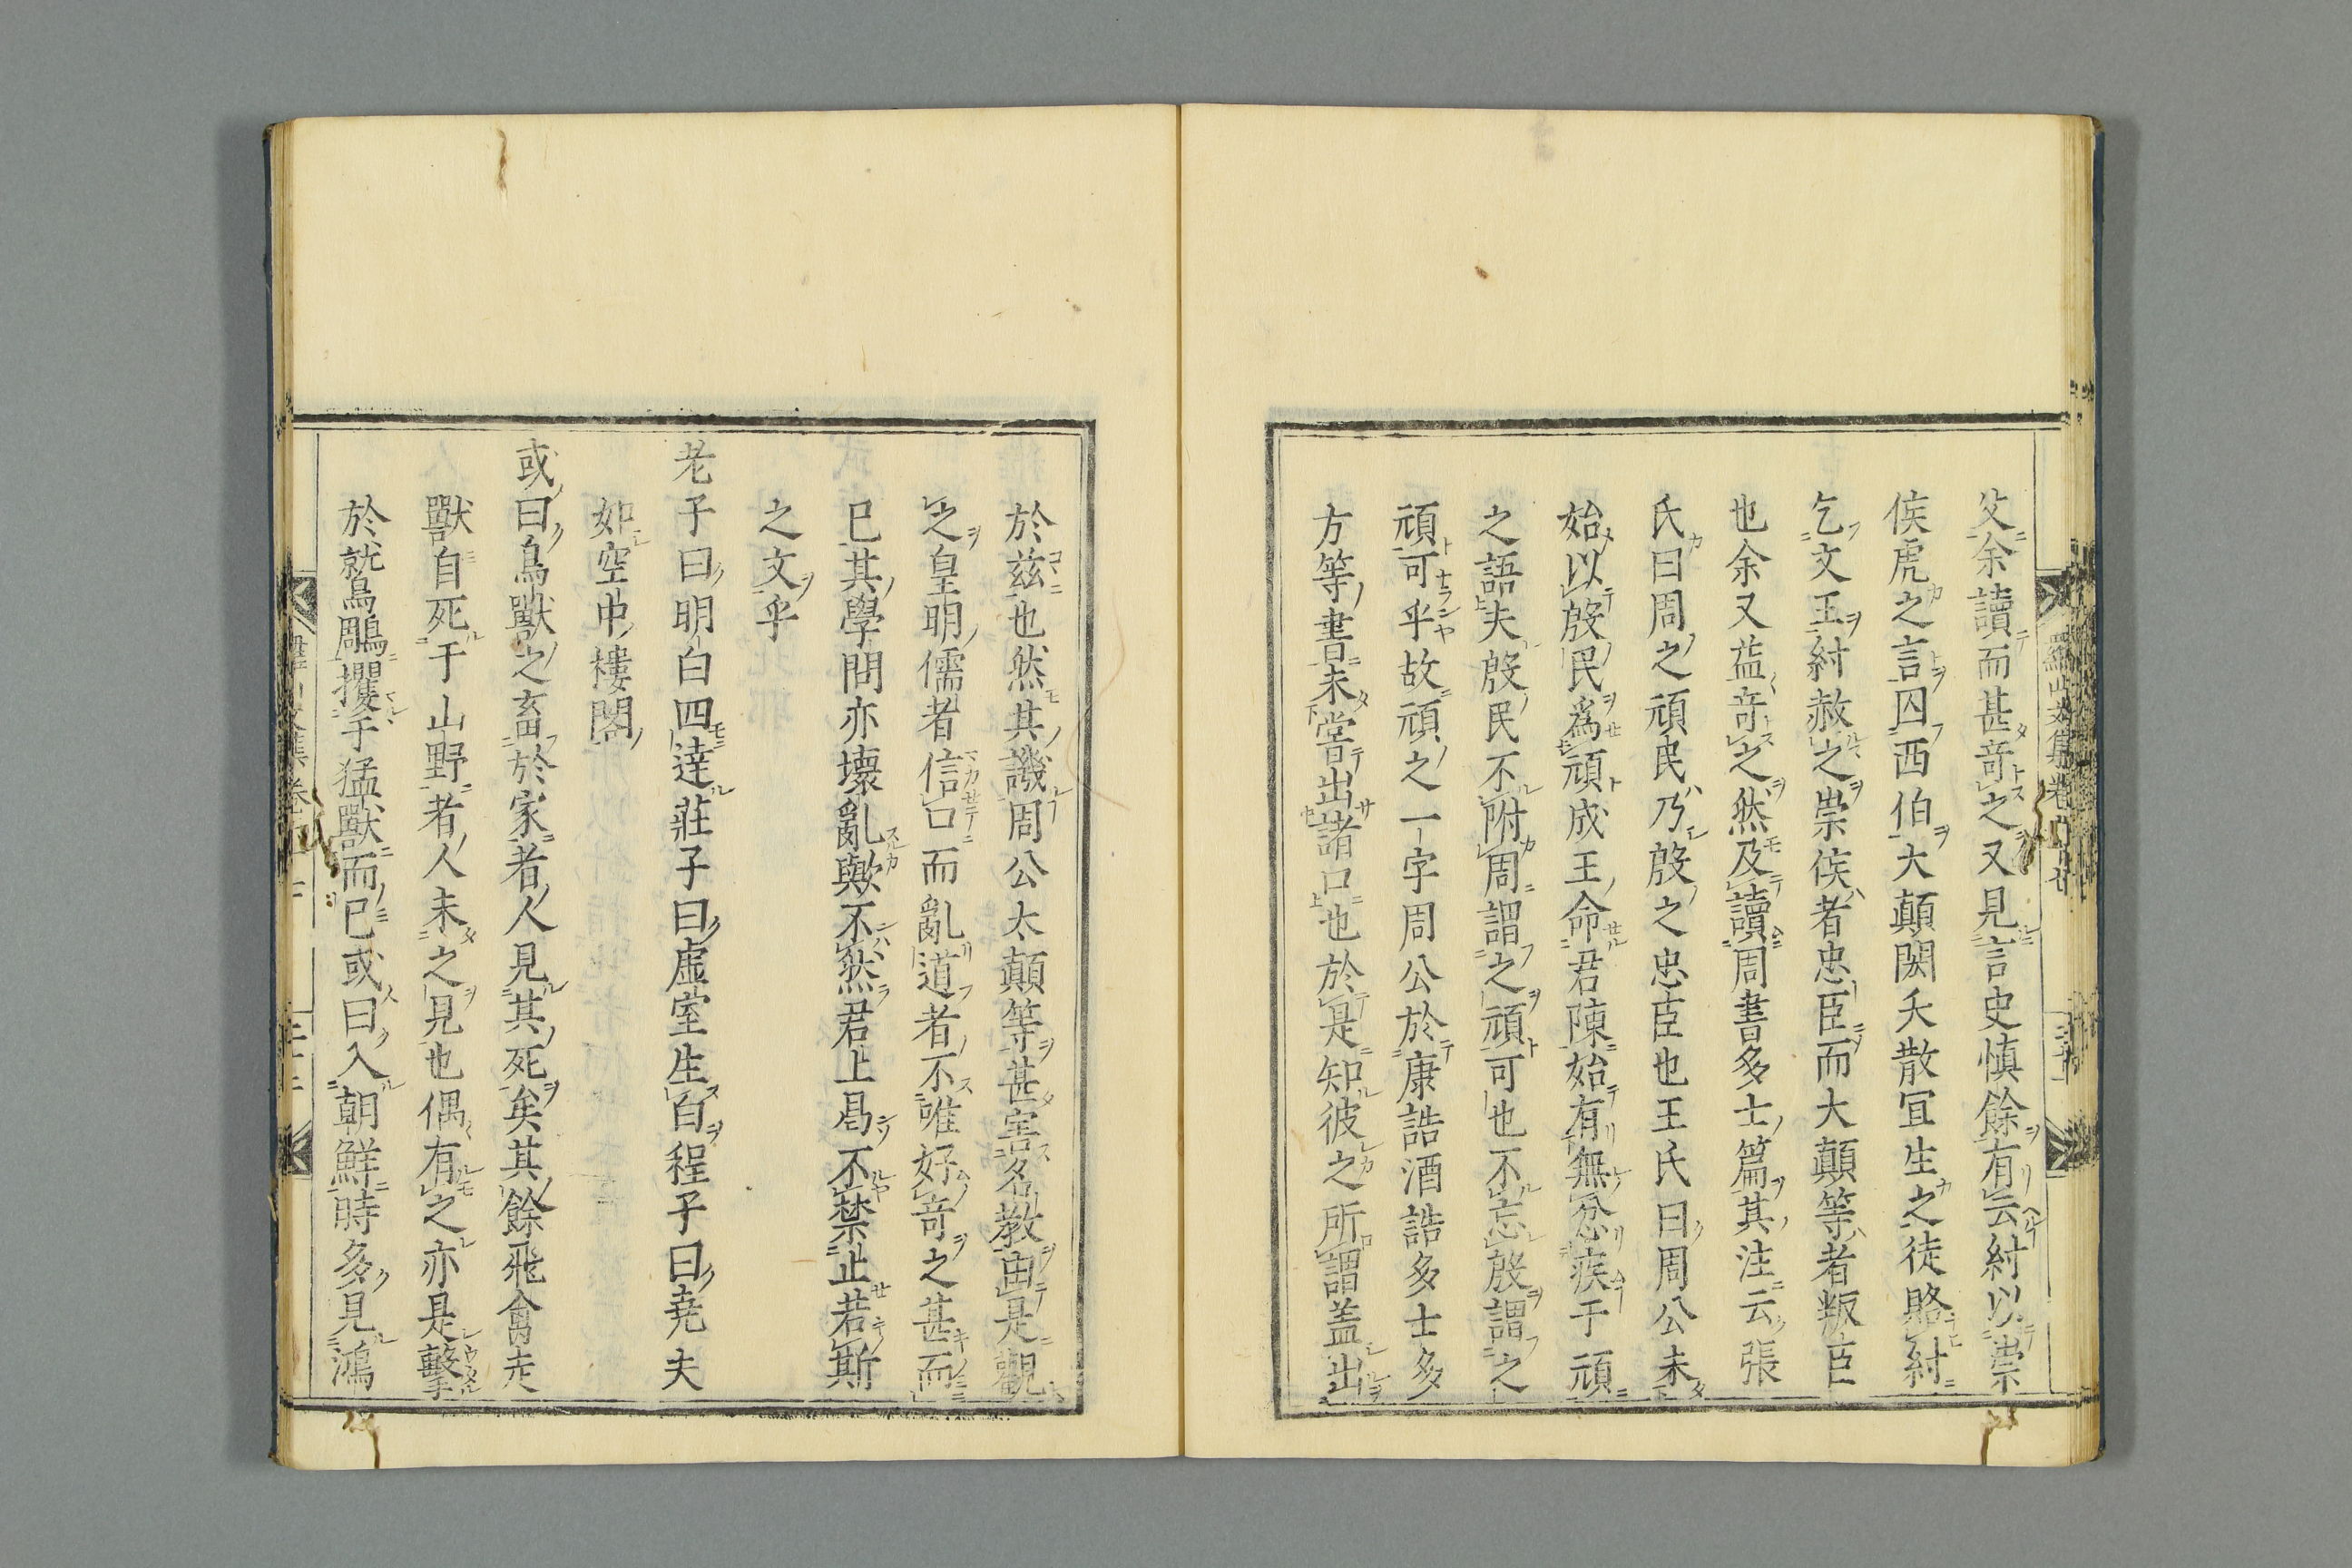 父余讀而甚竒之又見言史慎餘有云紂以崇
侯虎之言囚西伯大顛閎夭散冝生之徒賂紂
乞文王紂赦之崇侯者忠臣而大顛等者叛臣
也余又益竒之然及讀周書多士篇其注云張
氏曰周之頑民乃殷之忠臣也王氏曰周公未
始以殷民為頑成王命君陳始有無忿疾于頑
之語夫殷民不附周謂之頑可也不忘殷謂之
頑可乎故頑之一字周公於康誥酒誥多士多
方等書未甞出諸口也於是知彼之所謂盖出
於兹也然其譏周公太顛等甚害名教由是觀
之皇明儒者信口而亂道者不唯好竒之甚而
已其學問亦壞亂歟不然君上曷不禁止若斯
之文乎
老子曰明白四達莊子曰虚室生白程子曰尭夫
如空中樓閣
或曰鳥獸之畜於家者人見其死矣其餘飛禽走
獸自死于山野者人未之見也偶有之亦是擊
於鷲鵰攫于猛獸而已或曰入朝鮮時多見鴻